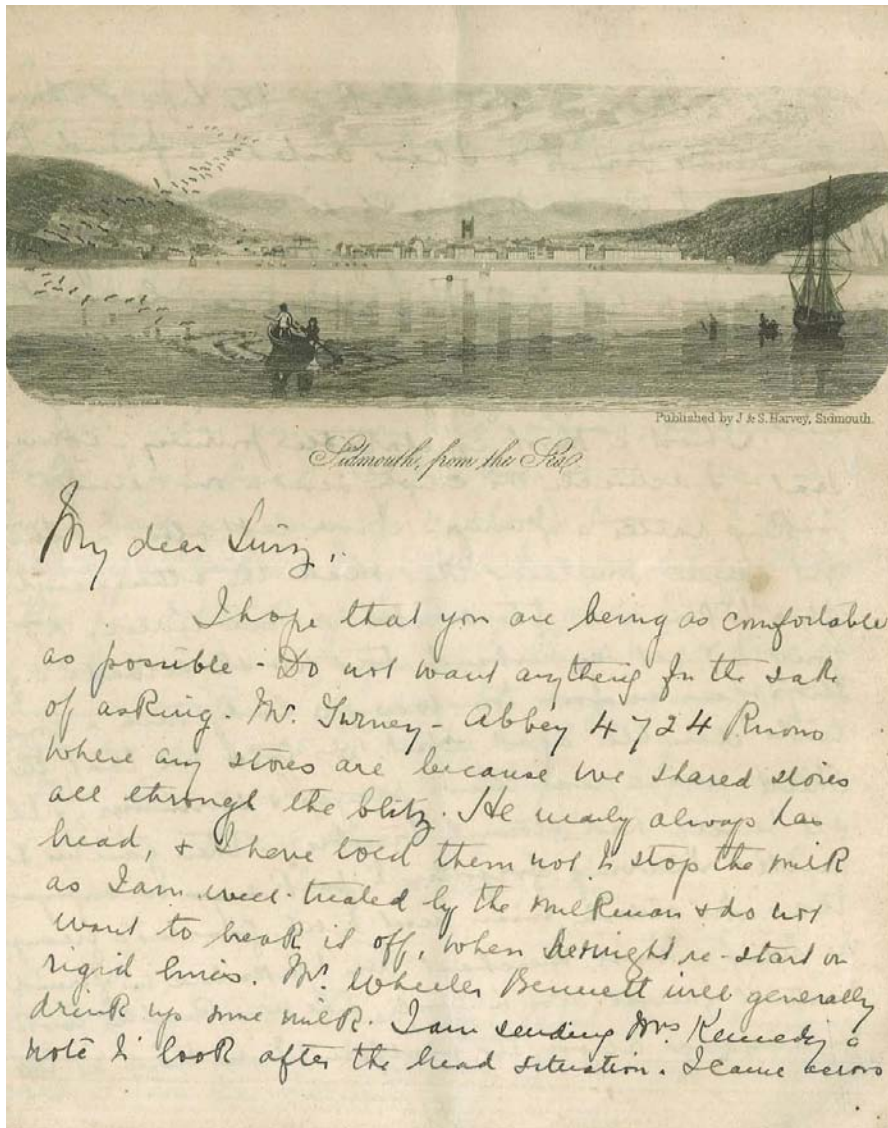 Published by J & S. Harvey, Sidmouth.
Sidmouth, from the Sea.
My dear
I hope that you are being as comfortable
as possible - Do not want anything for the sake
of asking. Mr. Turney - Abbey 4724 Knows
where any stores are because we shared stores
all through the blitz. He nearly always has
bread, & I have told them not to stop the milk
as I am well-treated by the milkman & do not
want to break it off, when he might re-start on
rigid lines. Mr. Wheeler Bennett will generally
drink up some milk. I am sending Mrs. Kennedy a
note to look after the bread situation. I came across